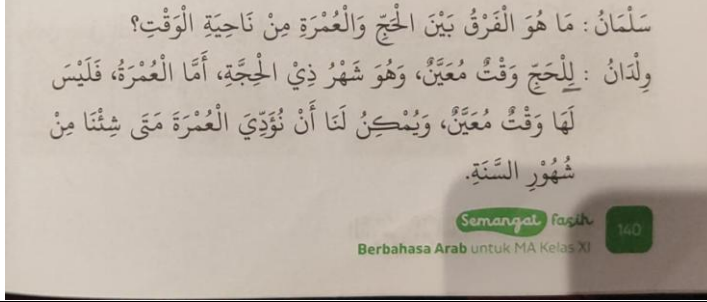 سَلْمَانُ : مَا هُوَ الْفَرْقُ بَيْنَ الْحَجِّ وَالْعُمْرَةِ مِنْ نَاحِيَةِ الْوَقْتِ؟
وِلْدَانُ : لِلْحَجِّ وَقْتٌ مُعَيَّنٌ، وَهُوَ شَهْرُ ذِيْ الْحِجَّةِ، أَمَّا الْعُمْرَةُ، فَلَيْسَ
لَهَا وَقْتٌ مُعَيَّنٌ، وَيُمْكِنُ لَنَا أَنْ نُؤَدِّيَ الْعُمْرَةَ مَتَى شِئْنَا مِنْ
شُهُوْرِ السَّنَةِ.
Semangat fasih
140
Berbahasa Arab untuk MA Kelas XI